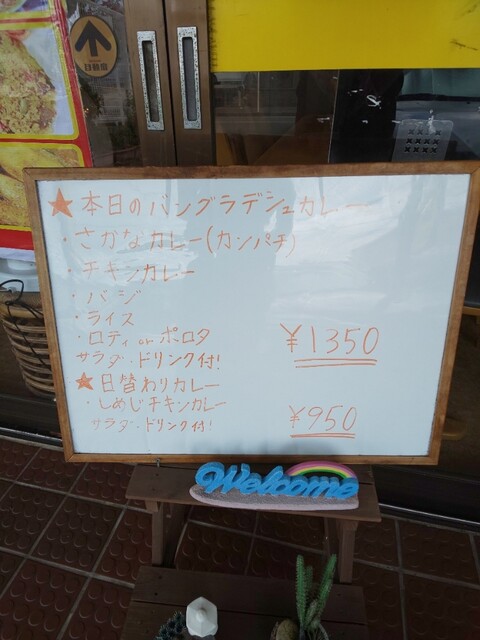 ★本日のバングラデシュカレー
・さかなカレー(カンパチ)
・チキンカレー
・バジ
・ライス
・ロティ or ポロタ
サラダ・ドリンク付! ¥1350
★日替わりカレー
・しめじチキンカレー
サラダ・ドリンク付! ¥950
Welcome